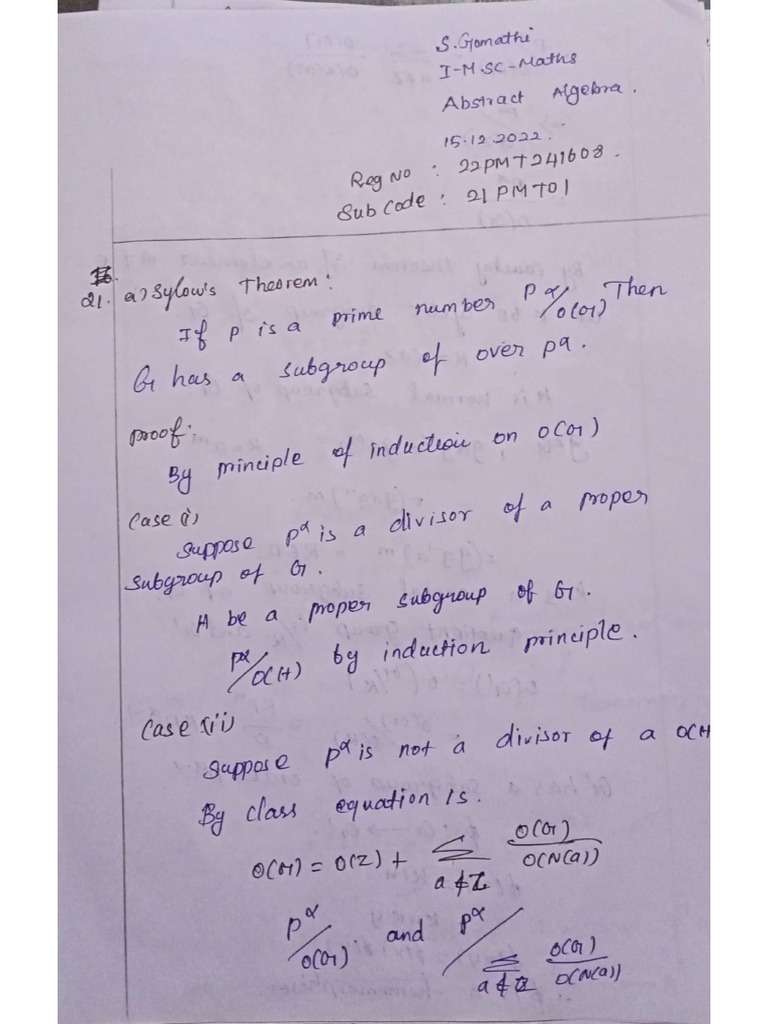 S.Gomathi
I-M.SC-Maths
Abstract Algebra.
15.12.2022.
Reg No : 22PMT241608.
Sub Code : 21PMT01
21. a) Sylow's Theorem:
If p is a prime number p^α/O(G) Then
G has a subgroup of over pα.
Proof:
By principle of induction on O(G)
Case (i)
Suppose p^α is a divisor of a proper
subgroup of G.
H be a proper subgroup of G.
p^α/O(H) by induction principle.
Case (ii)
Suppose p^α is not a divisor of a O(H
By class equation is.
O(G) = O(Z) + Σ_{a∉Z} O(G)/O(N(a))
p^α/O(G) and p^α/Σ_{a∉Z} O(G)/O(N(a))